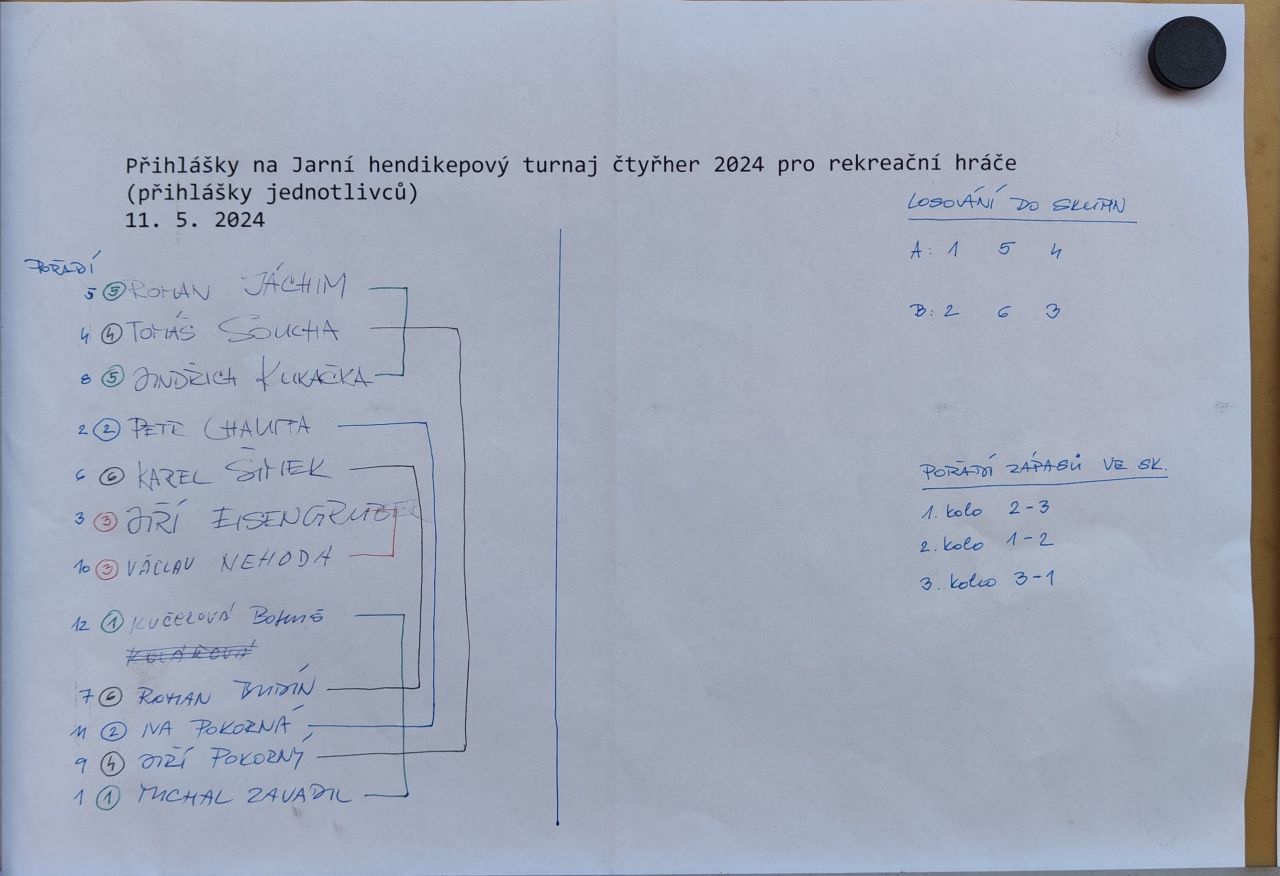 Přihlášky na Jarní hendikepový turnaj čtyřher 2024 pro rekreační hráče
(přihlášky jednotlivců)
11. 5. 2024
POŘADÍ
5 5 ROMAN JÁCHIM
4 4 TOMÁŠ SOUCHA
8 5 JINDŘICH KUKAČKA
2 2 PETR
6 6 KAREL ŠIMEK
3 3 JIŘÍ EISENGRUBER
10 3 VÁCLAV NEHODA
12 1 KUČEROVÁ
KOLÁŘOVÁ
7 6 ROMAN BUDÍN
11 2 IVA POKORNÁ
9 4 JIŘÍ POKORNÝ
1 1 MICHAL ZAVADIL
LOSOVÁNÍ DO SKUPIN
A: 1 5 4
B: 2 6 3
POŘADÍ ZÁPASŮ VE SK.
1. kolo 2-3
2. kolo 1-2
3. kolo 3-1